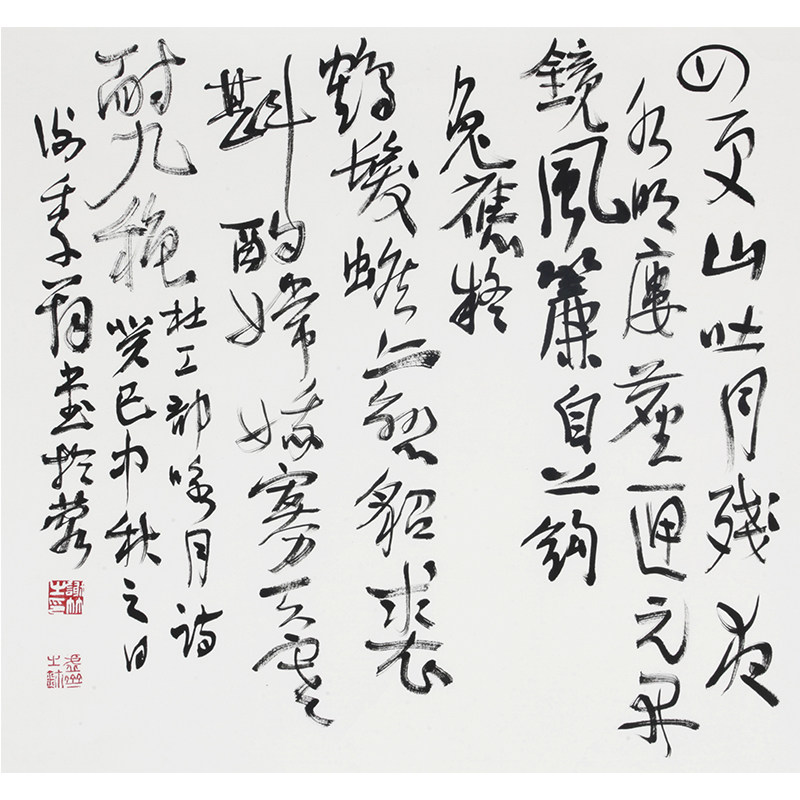 四更山吐月殘夜
水明廔塵匣元开
鏡風簾自上鉤
兔應疑
鶴髮蟾亦戀貂裘
斟酌嫦娥寡天寒
耐九穐
杜工部咏月詩
癸巳中秋之日
謝季筠書於蓉